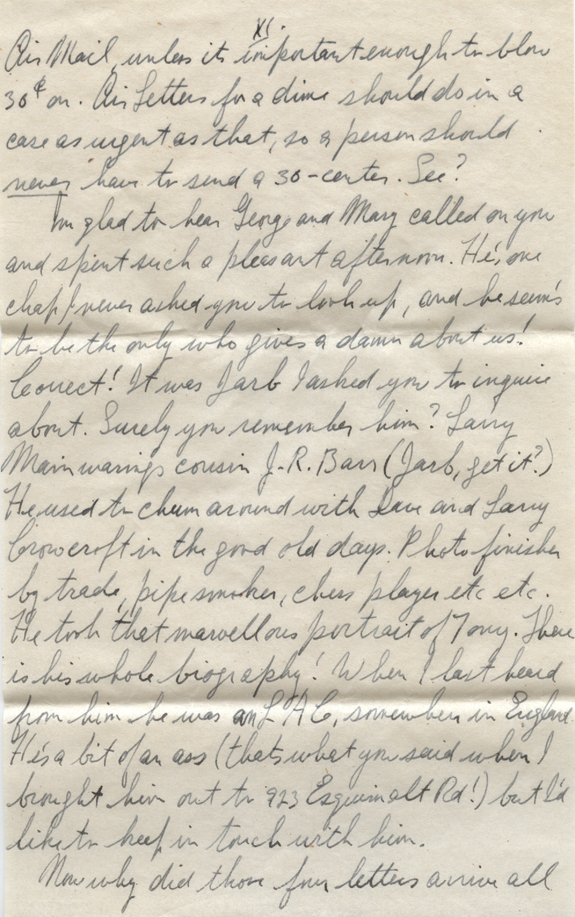 XI.
Air Mail, unless its important enough to blow
30¢ on. Air Letters for a dime should do in a
case as urgent as that, so a person should
never have to send a 30-center. See?
Im glad to hear George and Mary called on you
and spent such a pleasant afternoon. He's one
chap I never asked you to look up, and he seems
to be the only who gives a damn about us!
Correct! It was Jarb I asked you to inquire
about. Surely you remember him? Larry
Mainwarings cousin J.R. Barr (Jarb, get it?)
He used to chum around with Dave and Larry
Crowcroft in the good old days. Photo finisher
by trade, pipe smoker, chess player etc etc.
He took that marvellous portrait of Tony. There
is his whole biography! When I last heard
from him he was an L.A.C., somewhere in England.
He's a bit of an ass (thats what you said when I
brought him out to 923 Esquimalt Rd!) but I'd
like to keep in touch with him.
Now why did those four letters arrive all